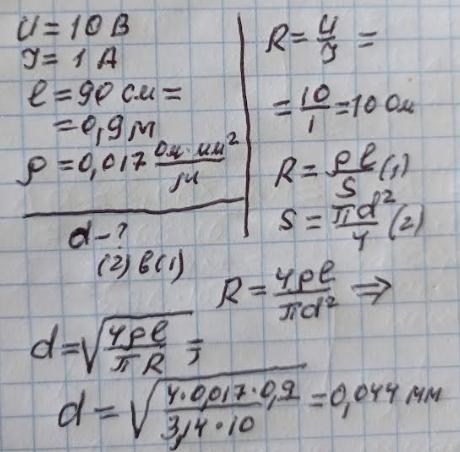 U = 10 В
I = 1 А
l = 90 см =
= 0,9 м
ρ = 0,017 Ом·мм²/м
d - ?
(2) в (1)
R = U/I =
= 10/1 = 10 Ом
R = ρl/S (1)
S = πd²/4 (2)
R = 4ρl/πd² ⇒
d = √(4ρl/πR) ;
d = √(4·0,017·0,9/3,14·10) = 0,044 мм